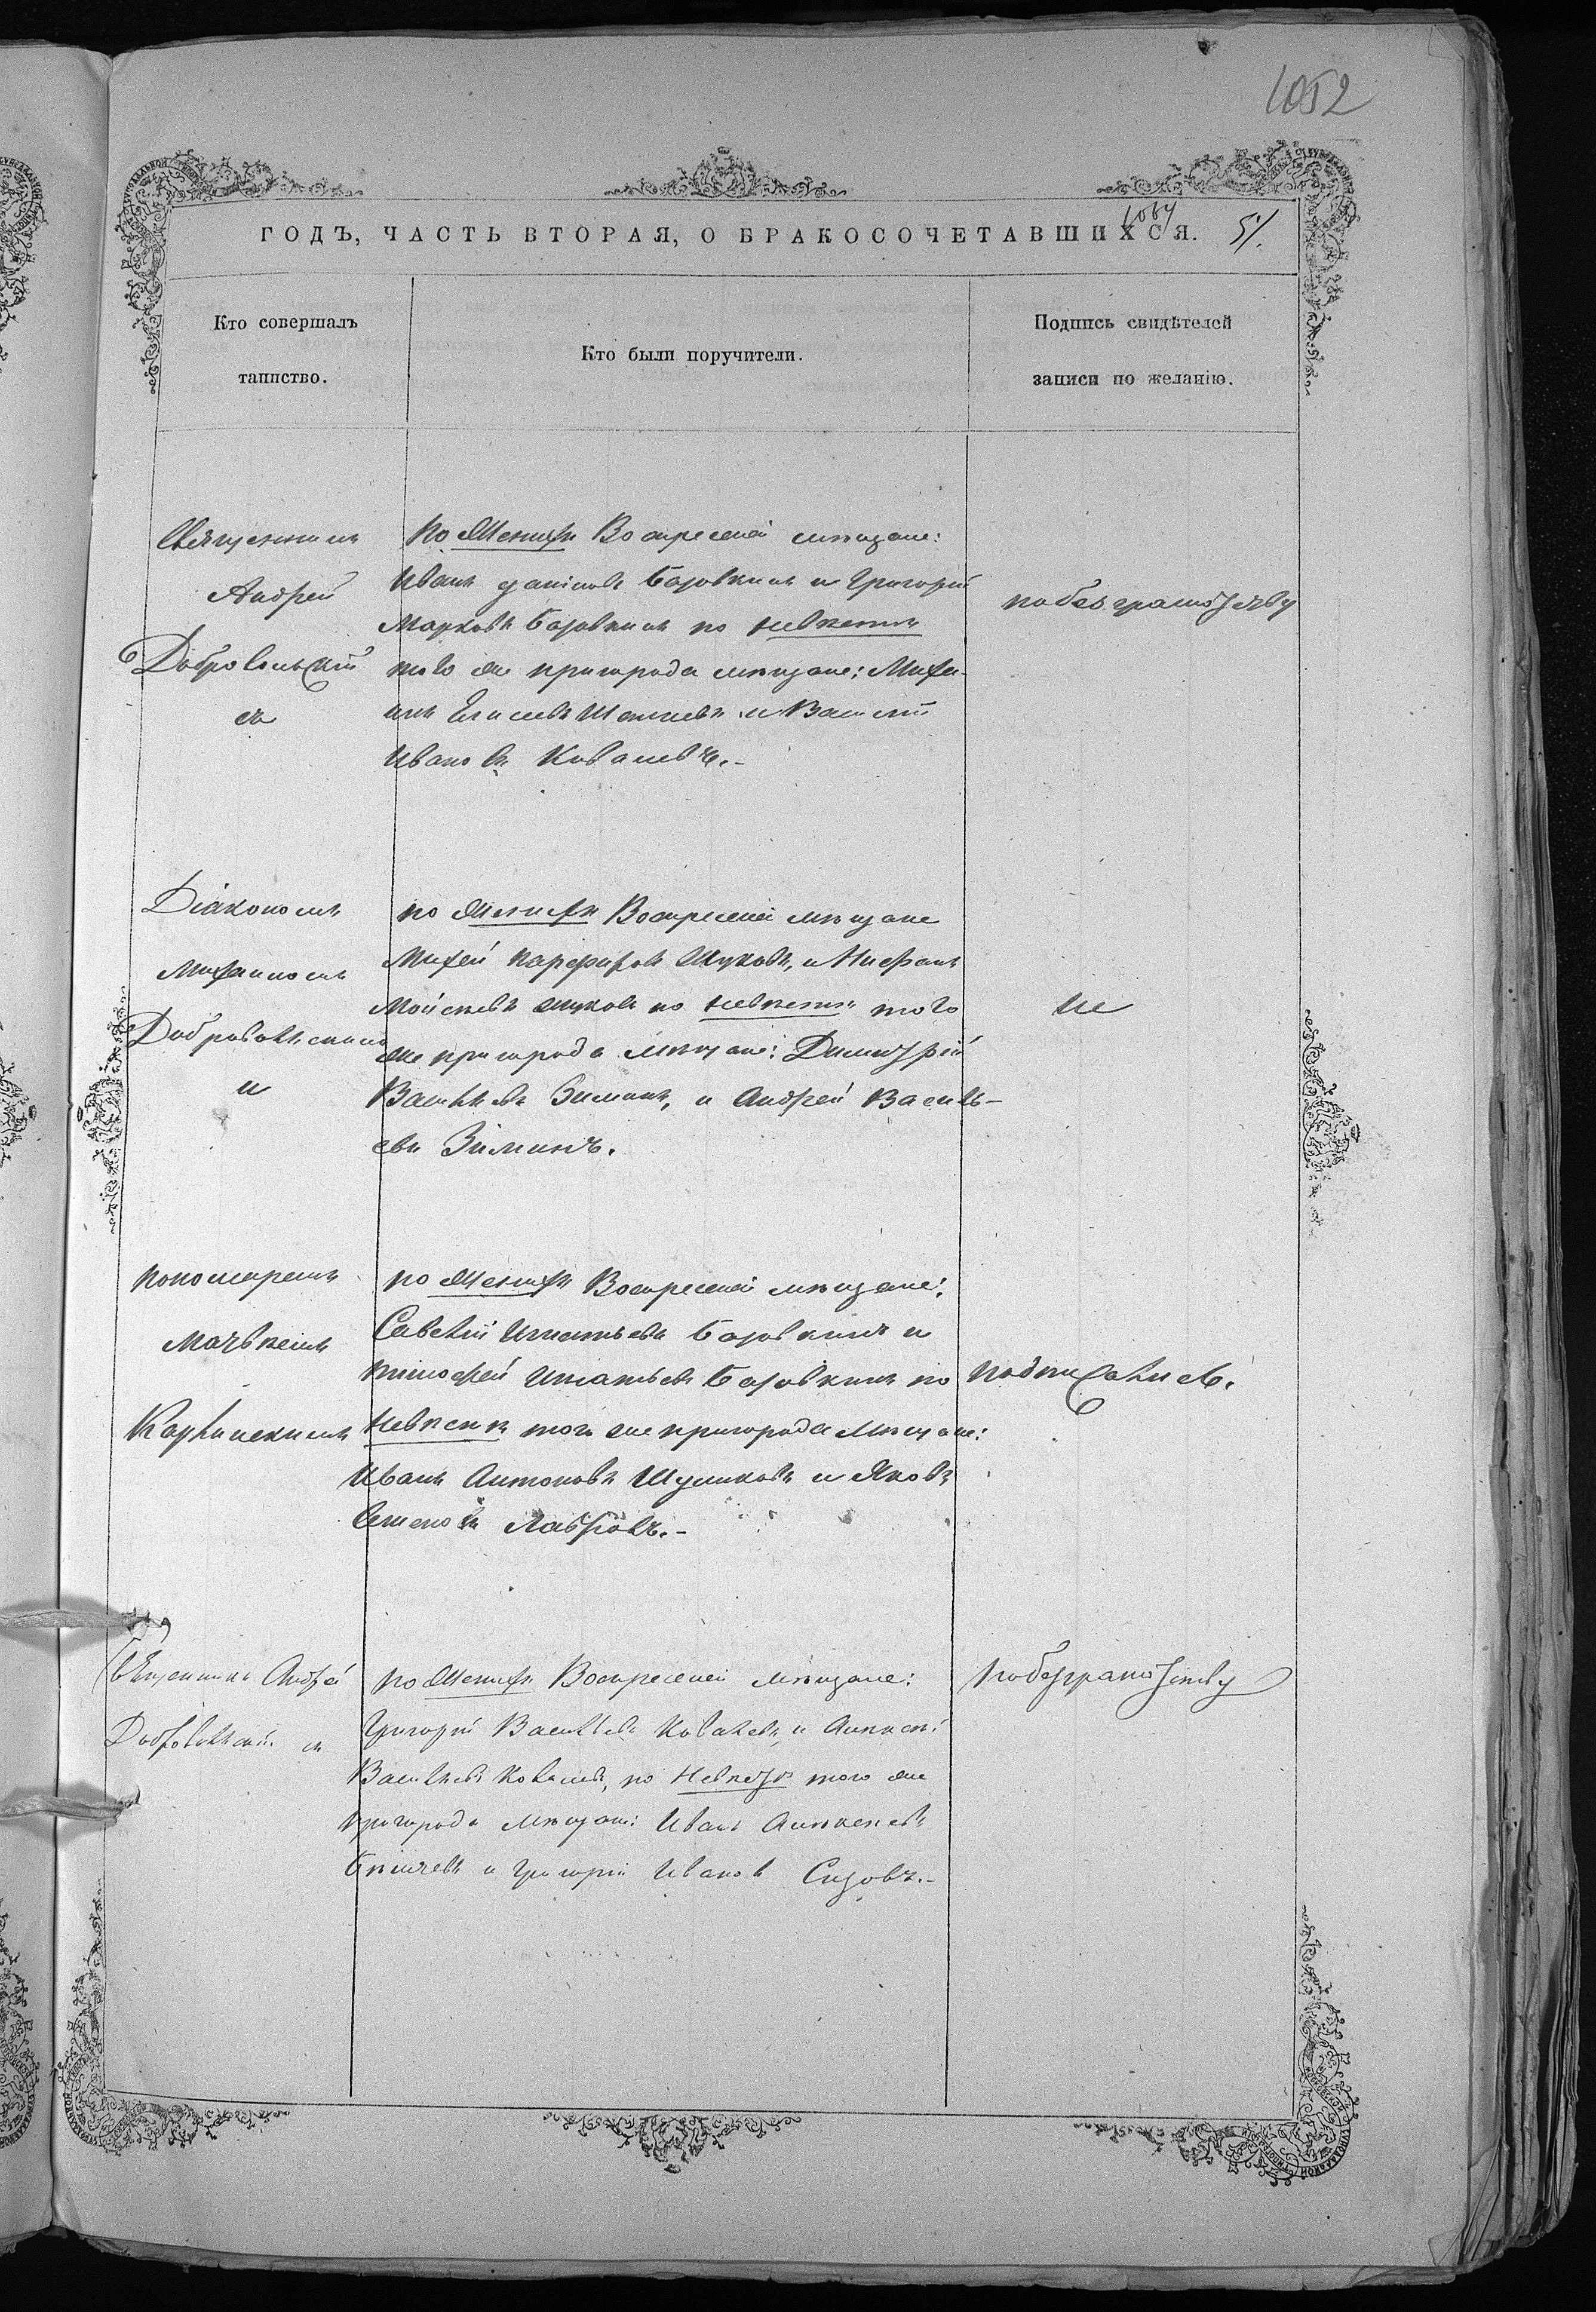 1052
ГОДЪ, ЧАСТЬ ВТОРАЯ, О БРАКОСОЧЕТАВШИХСЯ.
Кто совершалъ
таинство.
Кто были поручители.
Подпись свидѣтелей
записи по желанію.
Священникъ
Андрей
Добровольскій
съ
По женихѣ Воскресеній мѣщане:
Иванъ Базовкинъ и Григорій
Марковъ Базовкинъ по невѣстѣ
того же пригорода мѣщане: Миха-
илъ и Василій
Ивановъ Ковалевъ.-
по безграмотству
Діакономъ
Михаиломъ
Добровольскимъ
и
по женихѣ Воскресеній мѣщане
Михей Жуковъ, и
Моисеевъ Жуковъ по невѣстѣ того
же пригорода мѣщане: Димитрій
Васильевъ Зиминъ, и Андрей Василь-
евъ Зиминъ.
не
пономаремъ
Матвѣемъ
по женихѣ Воскресеній мѣщане:
Савелій Игнатьевъ Базовкинъ и
Тимофей Игнатьевъ Базовкинъ по
невѣстѣ того же пригорода мѣщане:
Иванъ Антоновъ Шушковъ и Яковъ
Лавровъ.-
подписались.
Священникъ Андрей
Добровольскій съ
по женихѣ Воскресеній мѣщане:
Григорій Васильевъ Ковалевъ, и Алексѣй
Васильевъ Ковалевъ, по невѣстѣ того же
пригорода мѣщане: Иванъ Алексѣевъ
и Григорій Ивановъ Сизовъ.-
по безграмотству